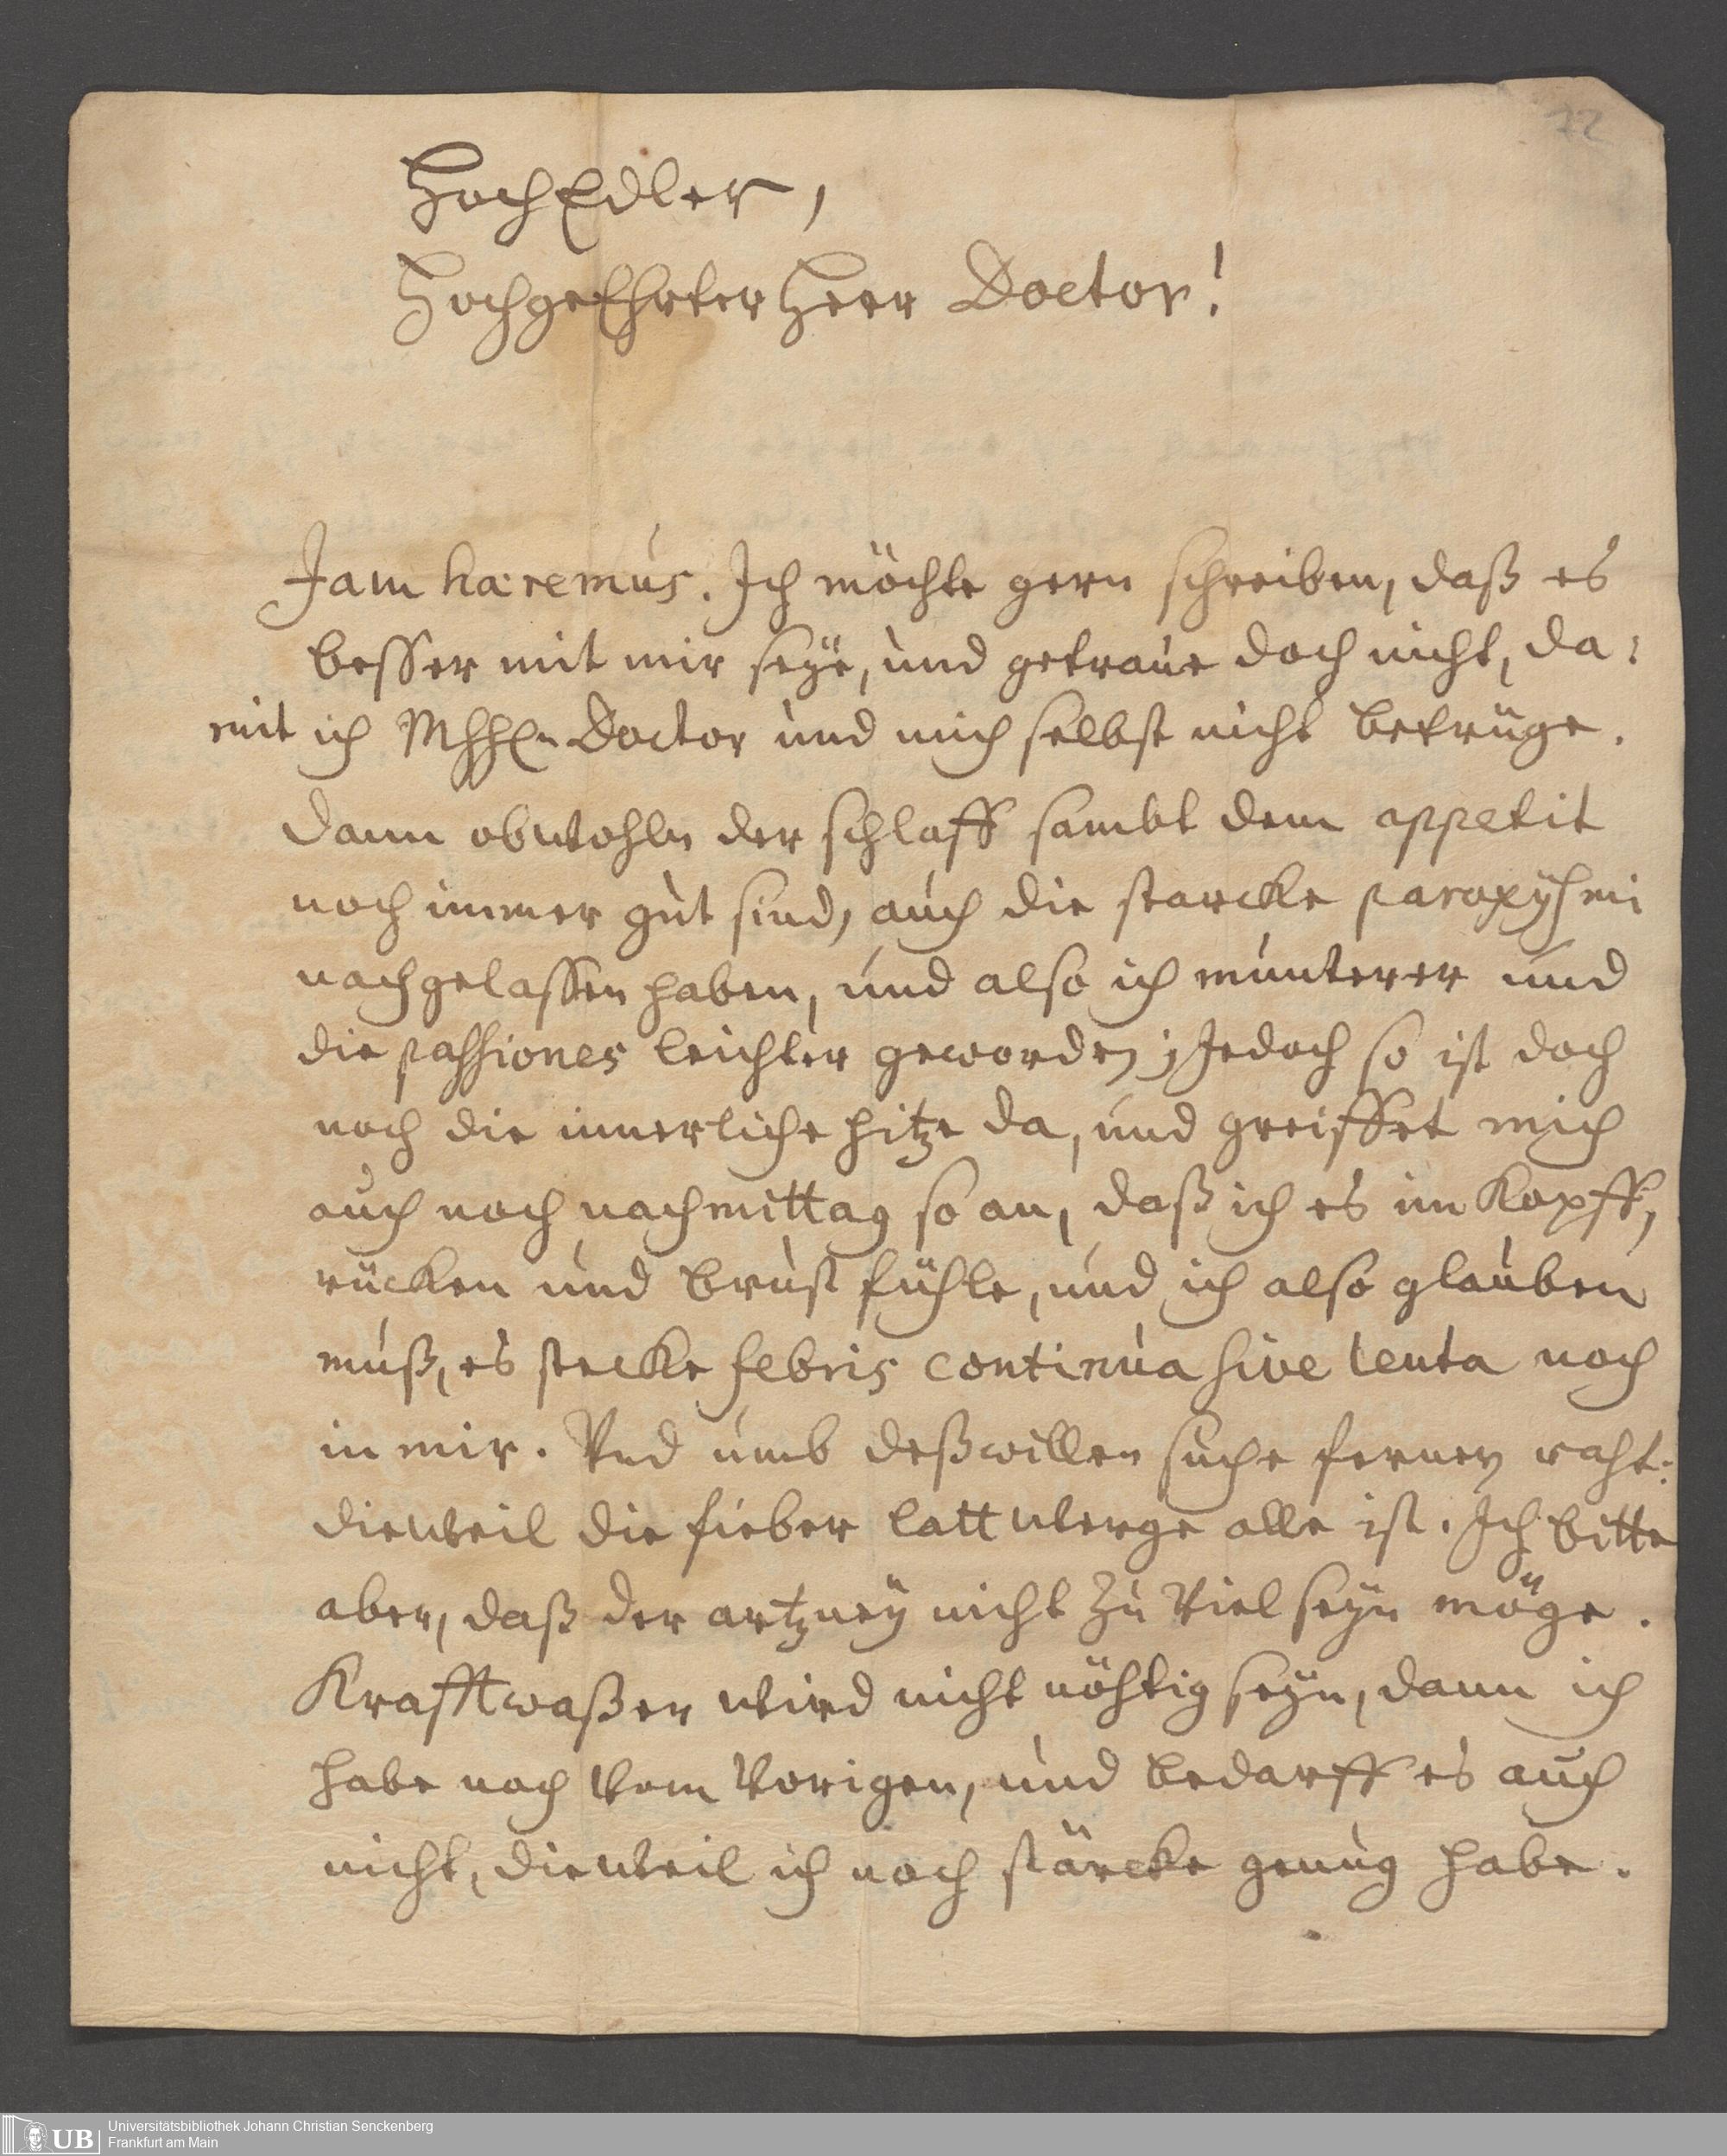 72
HochEdler,
HochgeEhrter Herr Doctor!
Jam hæremus. Ich möchte gern schreiben, daß es
besser mit mir seÿe, und getraue doch nicht, da:
mit ich MhhEn Doctor und mich selbst nicht betrüge.
Dann obwohln der schlaff sambt dem appetit
noch immer gut sind, auch die starcke paroxÿsmi
nachgelassen haben, und also ich munterer und
die passiones leichter geworden; Jedoch so ist doch
noch die innerliche hitze da, und greiffet mich
auch noch nachmittag so an, daß ich es im Kopff,
rücken und brust fühle, und ich also glauben
muß, es stecke febris continua sive lenta noch
in mir. Vnd umb deßwillen suche fernern raht:
dieweil die fieber lattwerge alle ist. Ich bitte
aber, daß der artzneÿ nicht zu viel seÿn möge.
Krafftwaßer wird nicht nöhtig seÿn, dann ich
habe noch vom vorigen, und bedarff es auch
nicht, dieweil ich noch stärcke genug habe.
UB
Universitätsbibliothek Johann Christian Senckenberg
Frankfurt am Main